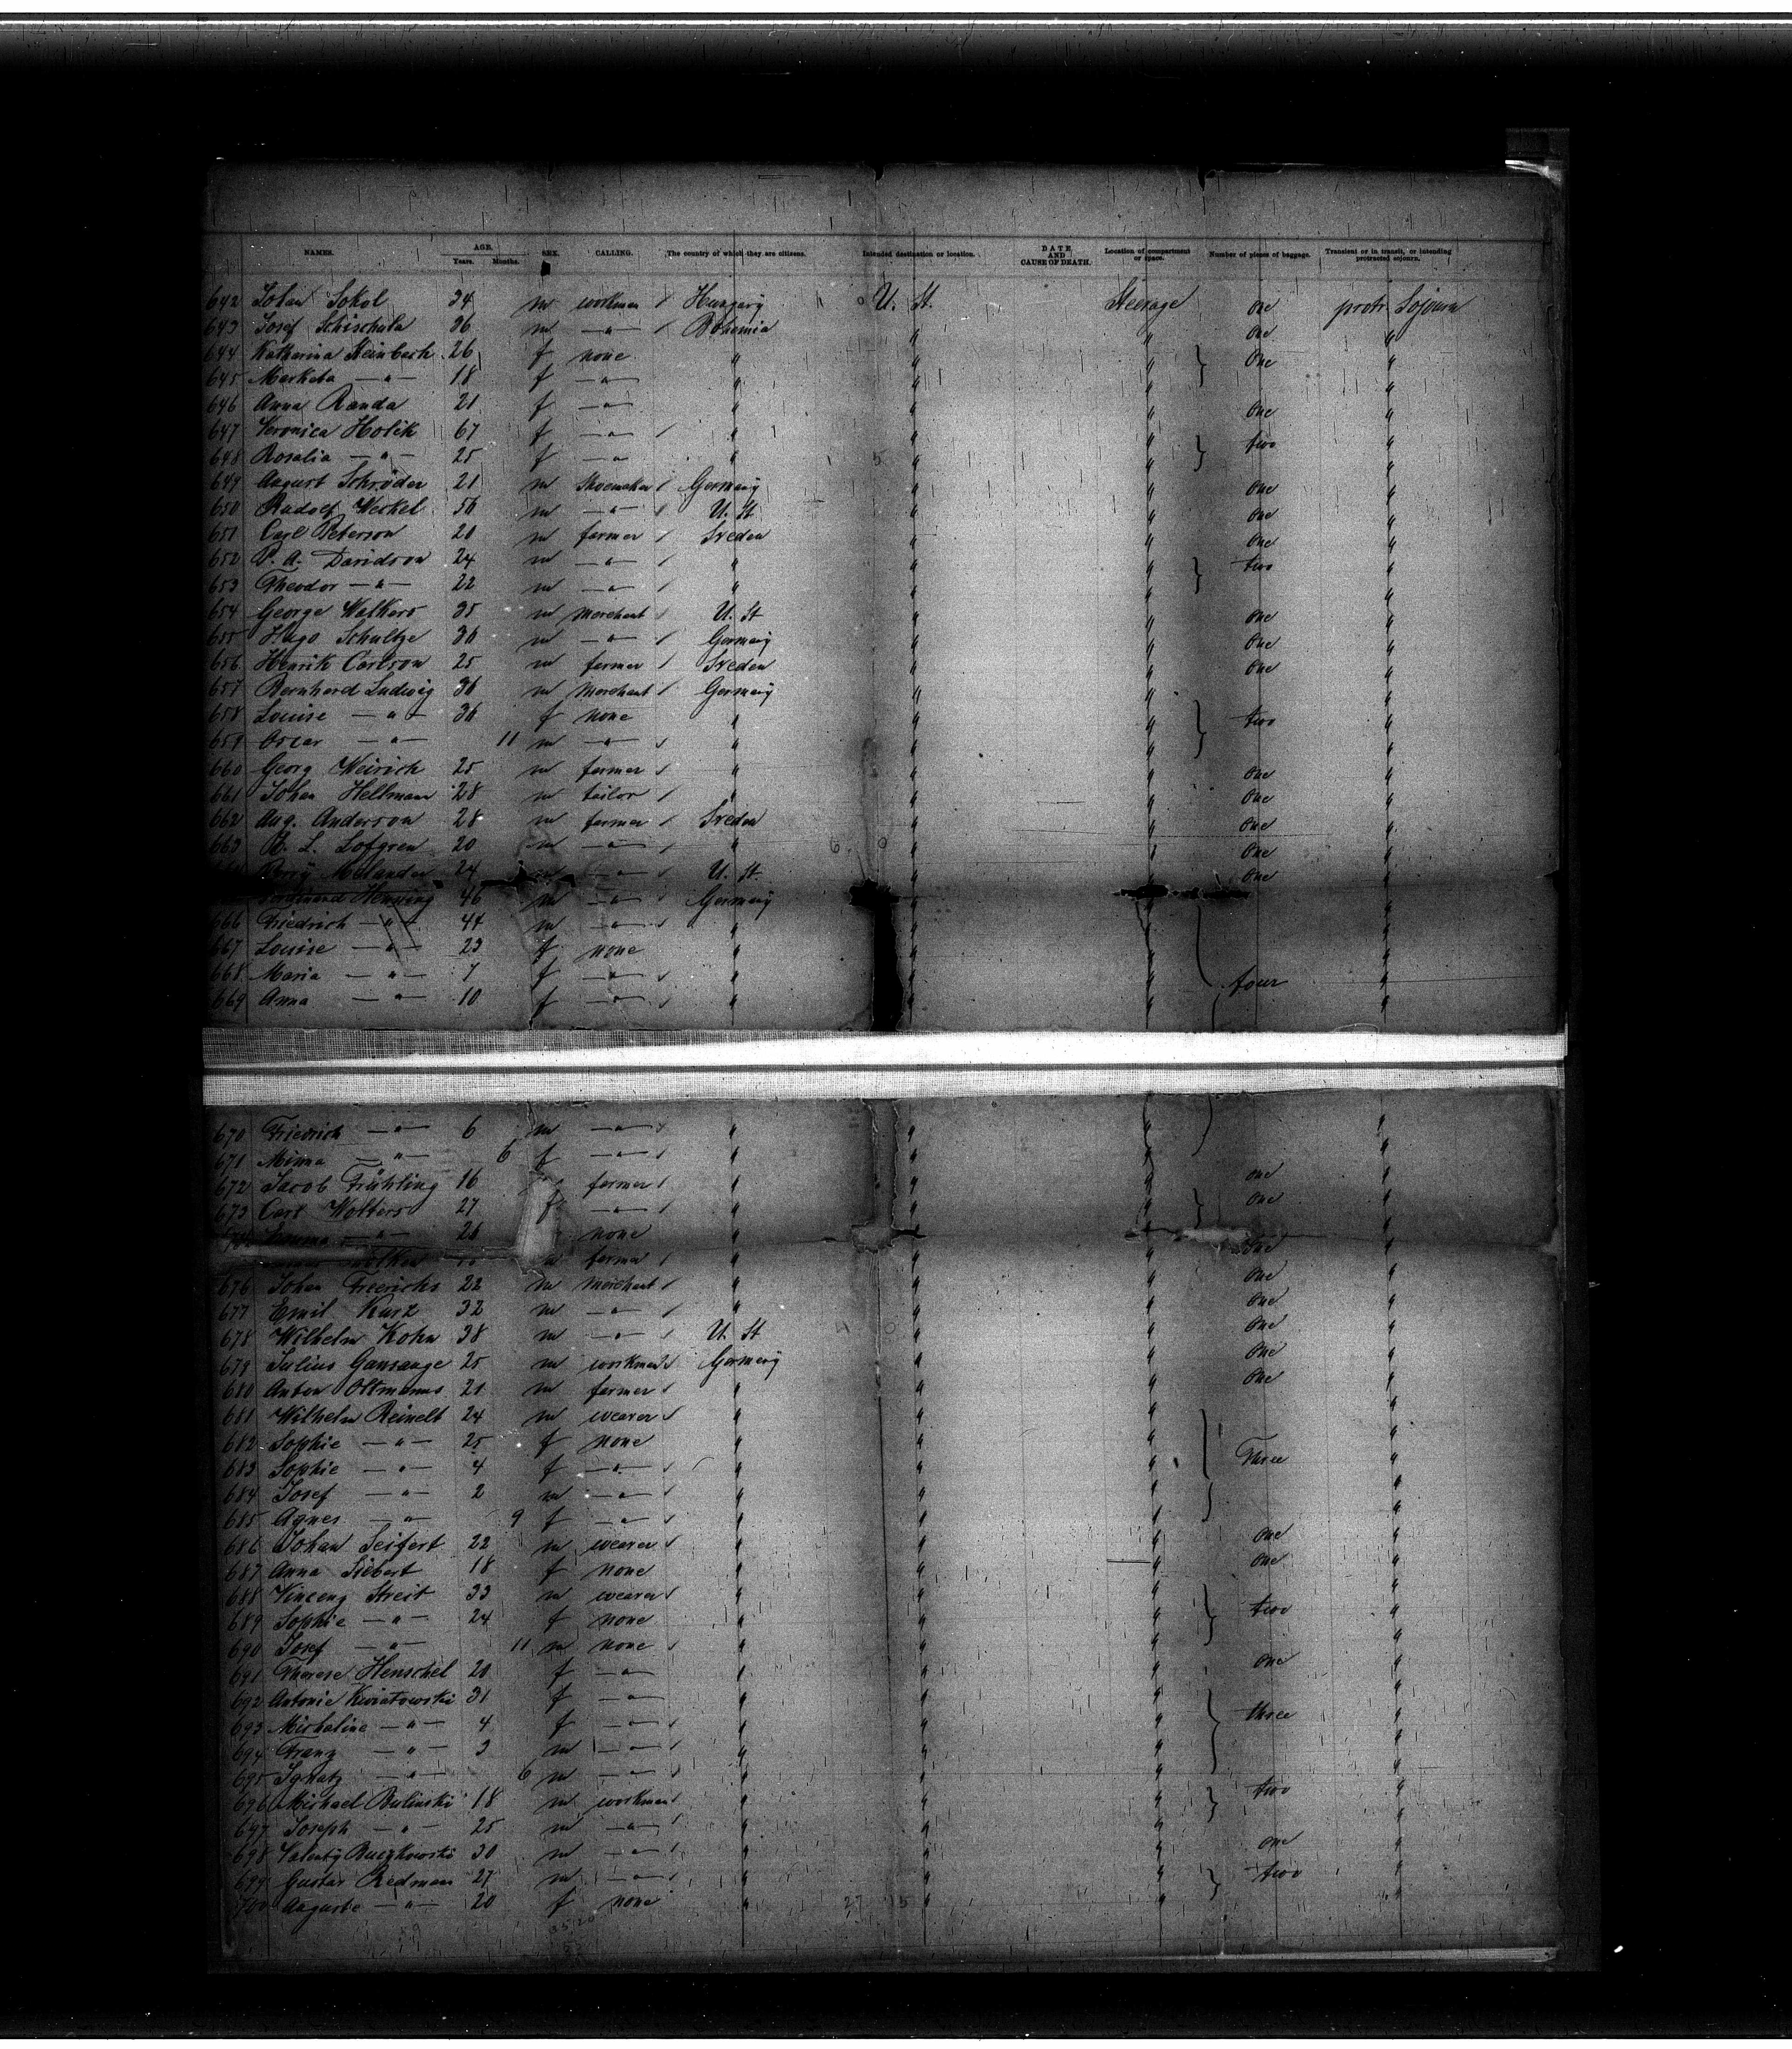 NAMES. AGE. Years. Months. SEX. CALLING. The country of which they are citizens. Intended destination or location. DATE AND CAUSE OF DEATH. Location of compartment or space. Number of pieces of baggage. Transient or in transit, or intending protracted sojourn.
642 Johan Sokol 34 m workman Hungary U. St. Steerage One protr. Sojourn
643 Josef Schischula 36 m —"— Bohemia " " One "
644 Katharina Steinbach 26 f none " " " One "
645 Marketa —"— 18 f —"— " " " "
646 Anna Randa 21 f —"— " " " One "
647 Veronica Holik 67 f —"— " " " two "
648 Rosalia —"— 25 f —"— " " " "
649 August Schröder 21 m Shoemaker Germany " " One "
650 Rudolf Werkel 56 m —"— U. St " " One "
651 Carl Peterson 20 m farmer Sveden " " One "
652 P. A. Davidson 24 m —"— " " " two "
653 Theodor —"— 22 m —"— " " " "
654 George Walkers 35 m Merchant U. St " " One "
655 Hugo Schultze 36 m —"— Germany " " One "
656 Henrik Carlson 25 m farmer Sveden " " One "
657 Bernhard Ludwig 36 m Merchant Germany " " "
658 Louise —"— 36 f none " " " two "
659 Oscar —"— 11 m —"— " " " "
660 Georg Weirich 25 m farmer " " " One "
661 Johan Hellman 28 m tailor " " " One "
662 Aug. Anderson 28 m farmer Sveden " " One "
663 L. Lofgren 20 m —"— " " " One "
Melander 24 —"— U. St. " One "
Ferdinand Henning 46 m —"— Germany " " "
666 Friedrich —"— 44 m —"— " " " "
667 Louise —"— 23 f none " " " "
668 Maria —"— 7 f —"— " " " four "
669 Anna —"— 10 f —"— " " " "
670 Friedrich —"— 6 m —"— " " " "
671 Minna —"— 6 f —"— " " " "
672 Jacob Frühling 16 farmer " " " One "
673 Carl Wolters 27 f —"— " " " One "
Emma —"— 26 none " " " "
m farmer " " " One "
676 Johan Freerichs 22 m Merchant " " " One "
677 Emil Kurz 32 m —"— " " " One "
678 Wilhelm Kohn 38 m —"— U. St " " One "
679 Julius Gansauge 25 m workman Germany " " One "
680 Anton Oltmanns 21 m farmer " " " One "
681 Wilhelm Reinelt 24 m wearer " " " "
682 Sophie —"— 25 f none " " " "
683 Sophie —"— 4 f —"— " " " Three "
684 Josef —"— 2 m —"— " " " "
685 Agnes —"— 9 f —"— " " " "
686 Johan Seifert 22 m wearer " " " One "
687 Anna Siebert 18 f none " " " One "
688 Vincenz Streit 33 m wearer " " " "
689 Sophie —"— 24 f none " " " two "
690 Josef —"— 11 m none " " " "
691 Therese Henschel 20 f —"— " " " One "
692 Antonie Kwiatowski 31 f —"— " " " "
693 Michaline —"— 4 f —"— " " " three "
694 Franz —"— 3 m —"— " " " "
695 Ignatz —"— 6 m —"— " " " "
696 Michael Bulinski 18 m workman " " " two "
697 Joseph —"— 25 m —"— " " " "
698 Valenty Buczkowski 30 m —"— " " " one "
699 Gustav Redman 27 m —"— " " " two "
700 Auguste —"— 20 f none " " " "